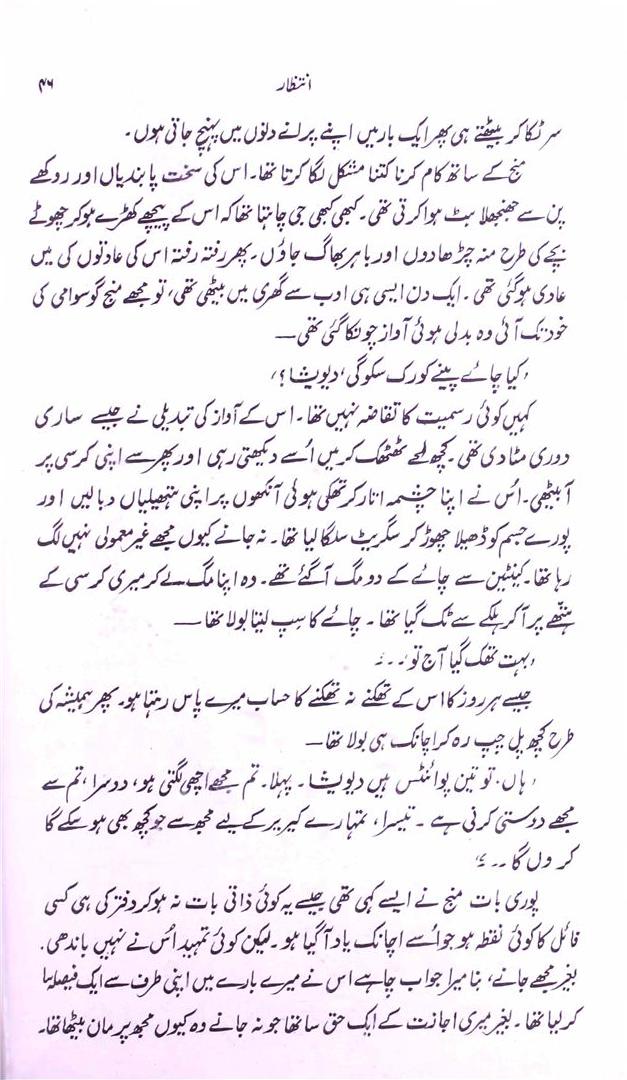 ۴۶ انتظار
سر ٹکا کر بیٹھتے ہی پھر ایک بار میں اپنے پرانے دنوں میں پہنچ جاتی ہوں۔
منج کے ساتھ کام کرنا کتنا مشکل لگا کرتا تھا۔ اس کی سخت پابندیاں اور روکھے
پن سے جھنجھلاہٹ ہوا کرتی تھی۔ کبھی کبھی جی چاہتا تھا کہ اس کے پیچھے کھڑے ہو کر چھوٹے
بچے کی طرح منہ چڑھا دوں اور باہر بھاگ جاؤں۔ پھر رفتہ رفتہ اس کی عادتوں کی میں
عادی ہو گئی تھی۔ ایک دن ایسی ہی ادب سے گھری میں بیٹھی تھی، تو مجھے منج گوسوامی کی
خود تک آئی وہ بدلی ہوئی آواز چونکا گئی تھی —
’کیا چائے پینے کو رک سکو گی، دیوشا؟‘
کہیں کوئی رسمیت کا تقاضہ نہیں تھا۔ اس کے آواز کی تبدیلی نے جیسے ساری
دوری مٹا دی تھی۔ کچھ لمحے ٹھٹھک کر میں اُسے دیکھتی رہی اور پھر سے اپنی کرسی پر
آ بیٹھی۔ اُس نے اپنا چشمہ اتار کر تھکی ہوئی آنکھوں پر اپنی ہتھیلیاں دبا لیں اور
پورے جسم کو ڈھیلا چھوڑ کر سگریٹ سلگا لیا تھا۔ نہ جانے کیوں مجھے غیر معمولی نہیں لگ
رہا تھا۔ کینٹین سے چائے کے دو مگ آ گئے تھے۔ وہ اپنا مگ لے کر میری کرسی کے
ہتھے پر آ کر ہلکے سے ٹک گیا تھا۔ چائے کا سِپ لیتا بولا تھا —
’بہت تھک گیا آج تو ۔۔۔‘
جیسے ہر روز کا اس کے تھکنے نہ تھکنے کا حساب میرے پاس رہتا ہو۔ پھر ہمیشہ کی
طرح کچھ پل چپ رہ کر اچانک ہی بولا تھا —
’ہاں۔ تو تین پوائنٹس ہیں دیوشا۔ پہلا۔ تم مجھے اچھی لگتی ہو، دوسرا، تم سے
مجھے دوستی کرنی ہے۔ تیسرا، تمہارے کیریر کے لیے مجھ سے جو کچھ بھی ہو سکے گا
کروں گا ۔۔۔‘
پوری بات منج نے ایسے کہی تھی جیسے یہ کوئی ذاتی بات نہ ہو کر دفتر کی ہی کسی
فائل کا کوئی نقطہ ہو جو اُسے اچانک یاد آ گیا ہو۔ لیکن کوئی تمہید اُس نے نہیں باندھی۔
بغیر مجھے جانے، بنا میرا جواب چاہے اس نے میرے بارے میں اپنی طرف سے ایک فیصلہ سا
کر لیا تھا۔ بغیر میری اجازت کے ایک حق سا تھا جو نہ جانے وہ کیوں مجھ پر مان بیٹھا تھا۔